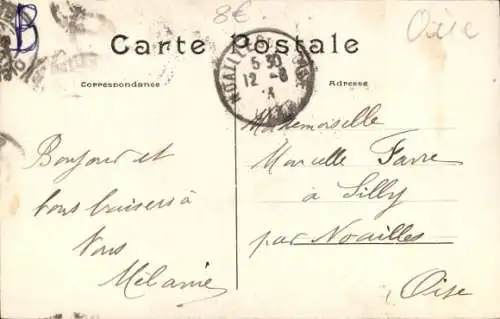 B
8€
Oise
Carte Postale
Correspondance
Adresse
NOAILLES OISE
5 30
12 - 8
Bonjour et
bons baisers à
Vous
Mélanie
Mademoiselle
Marcelle Favre
à Silly
par Noailles
Oise